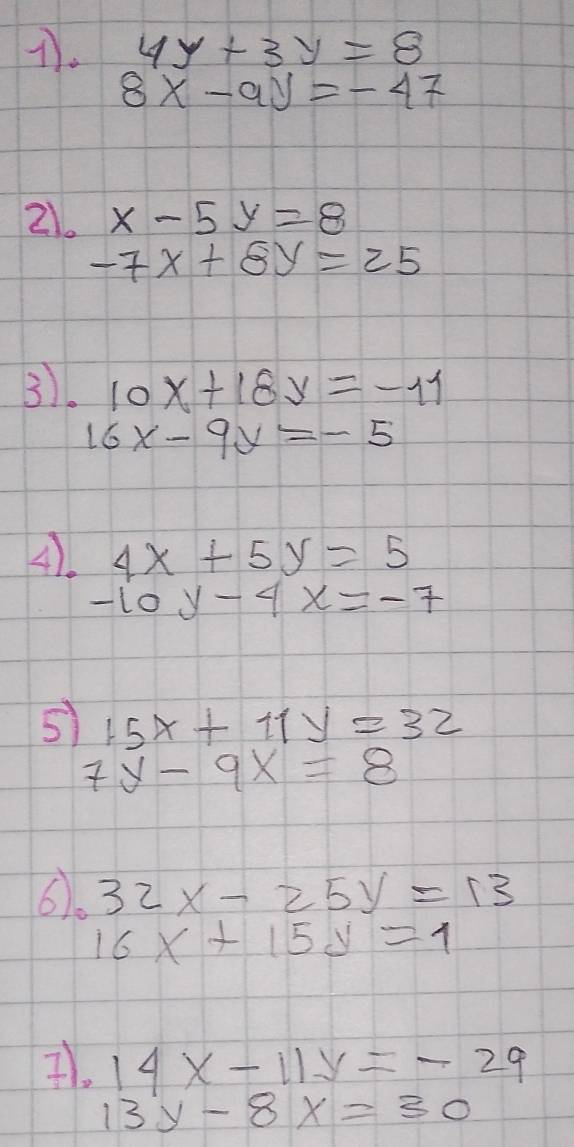 1). 4y + 3y = 8
8x - 9y = - 47
2). x - 5y = 8
-7x + 8y = 25
3). 10x + 18y = -11
16x - 9y = - 5
4). 4x + 5y = 5
-10y - 4x = -7
5) 15x + 11y = 32
7y - 9x = 8
6). 32x - 25y = 13
16x + 15y = 1
7). 14x - 11y = - 29
13y - 8x = 30